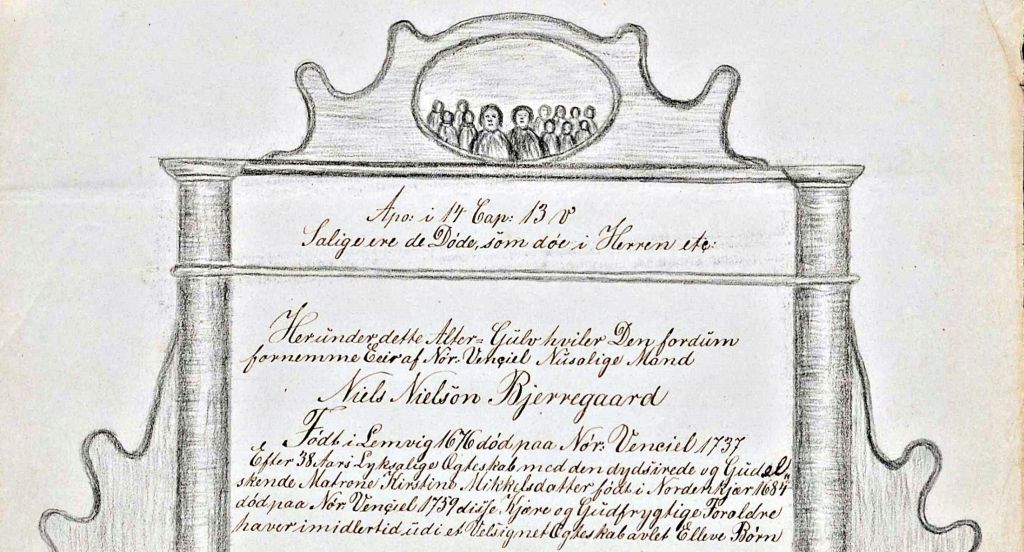 Apo: i 14 Cap: 13 v
Salige ere de Døde, som døe i Herren etc:
Herunder dette Alter= Gulv hviler Den fordum
fornemme Eeir af Nør: Vençiel Nusalige Mand
Niels Nielson Bjerregaard
Født i Lemvig 1676 død paa Nør: Venciel 1737
Efter 38 Aars Lyksalige Egteskab med den dydsirede og Gudel,
skende Matrone Kirstine Mikkelsdatter født i Nordenkjær 1684
død paa Nør Vençiel 1759 disse Kjære og Gudfrygtige Foroldre
haver imidlertid udi et Velsignet Egteskab avlet Elleve Børn